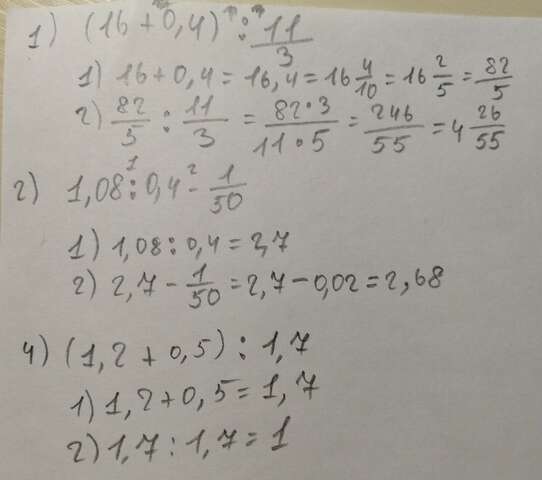 1) (16 + 0,4) : 11/3
1) 16 + 0,4 = 16,4 = 16 4/10 = 16 2/5 = 82/5
2) 82/5 : 11/3 = 82·3/11·5 = 246/55 = 4 26/55
2) 1,08 : 0,4 - 1/50
1 2
1) 1,08 : 0,4 = 2,7
2) 2,7 - 1/50 = 2,7 - 0,02 = 2,68
4) (1,2 + 0,5) : 1,7
1) 1,2 + 0,5 = 1,7
2) 1,7 : 1,7 = 1